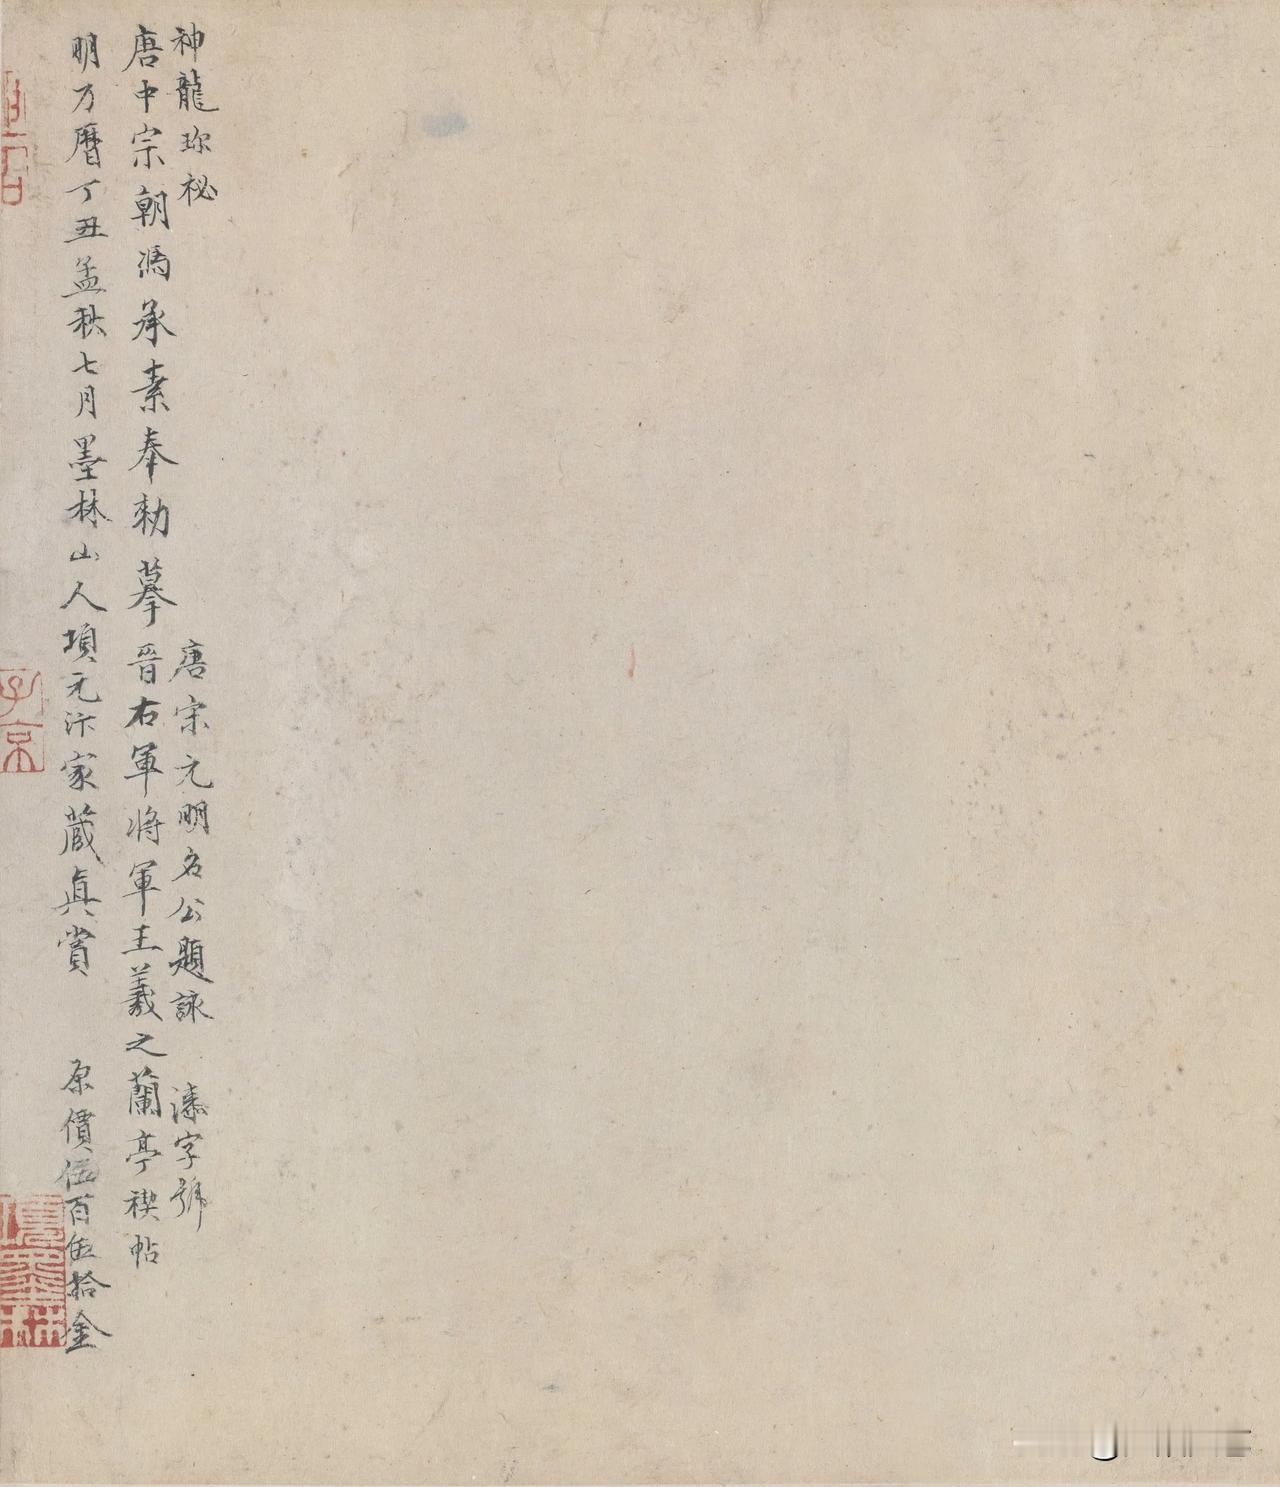 神龍珎祕
唐宋元明名公題詠
溱字號
唐中宗朝馮承素奉勅摹晉右軍將軍王羲之蘭亭禊帖
明万曆丁丑孟秋七月墨林山人項元汴家蔵真賞
原價伍百伍拾金
子京
項墨林